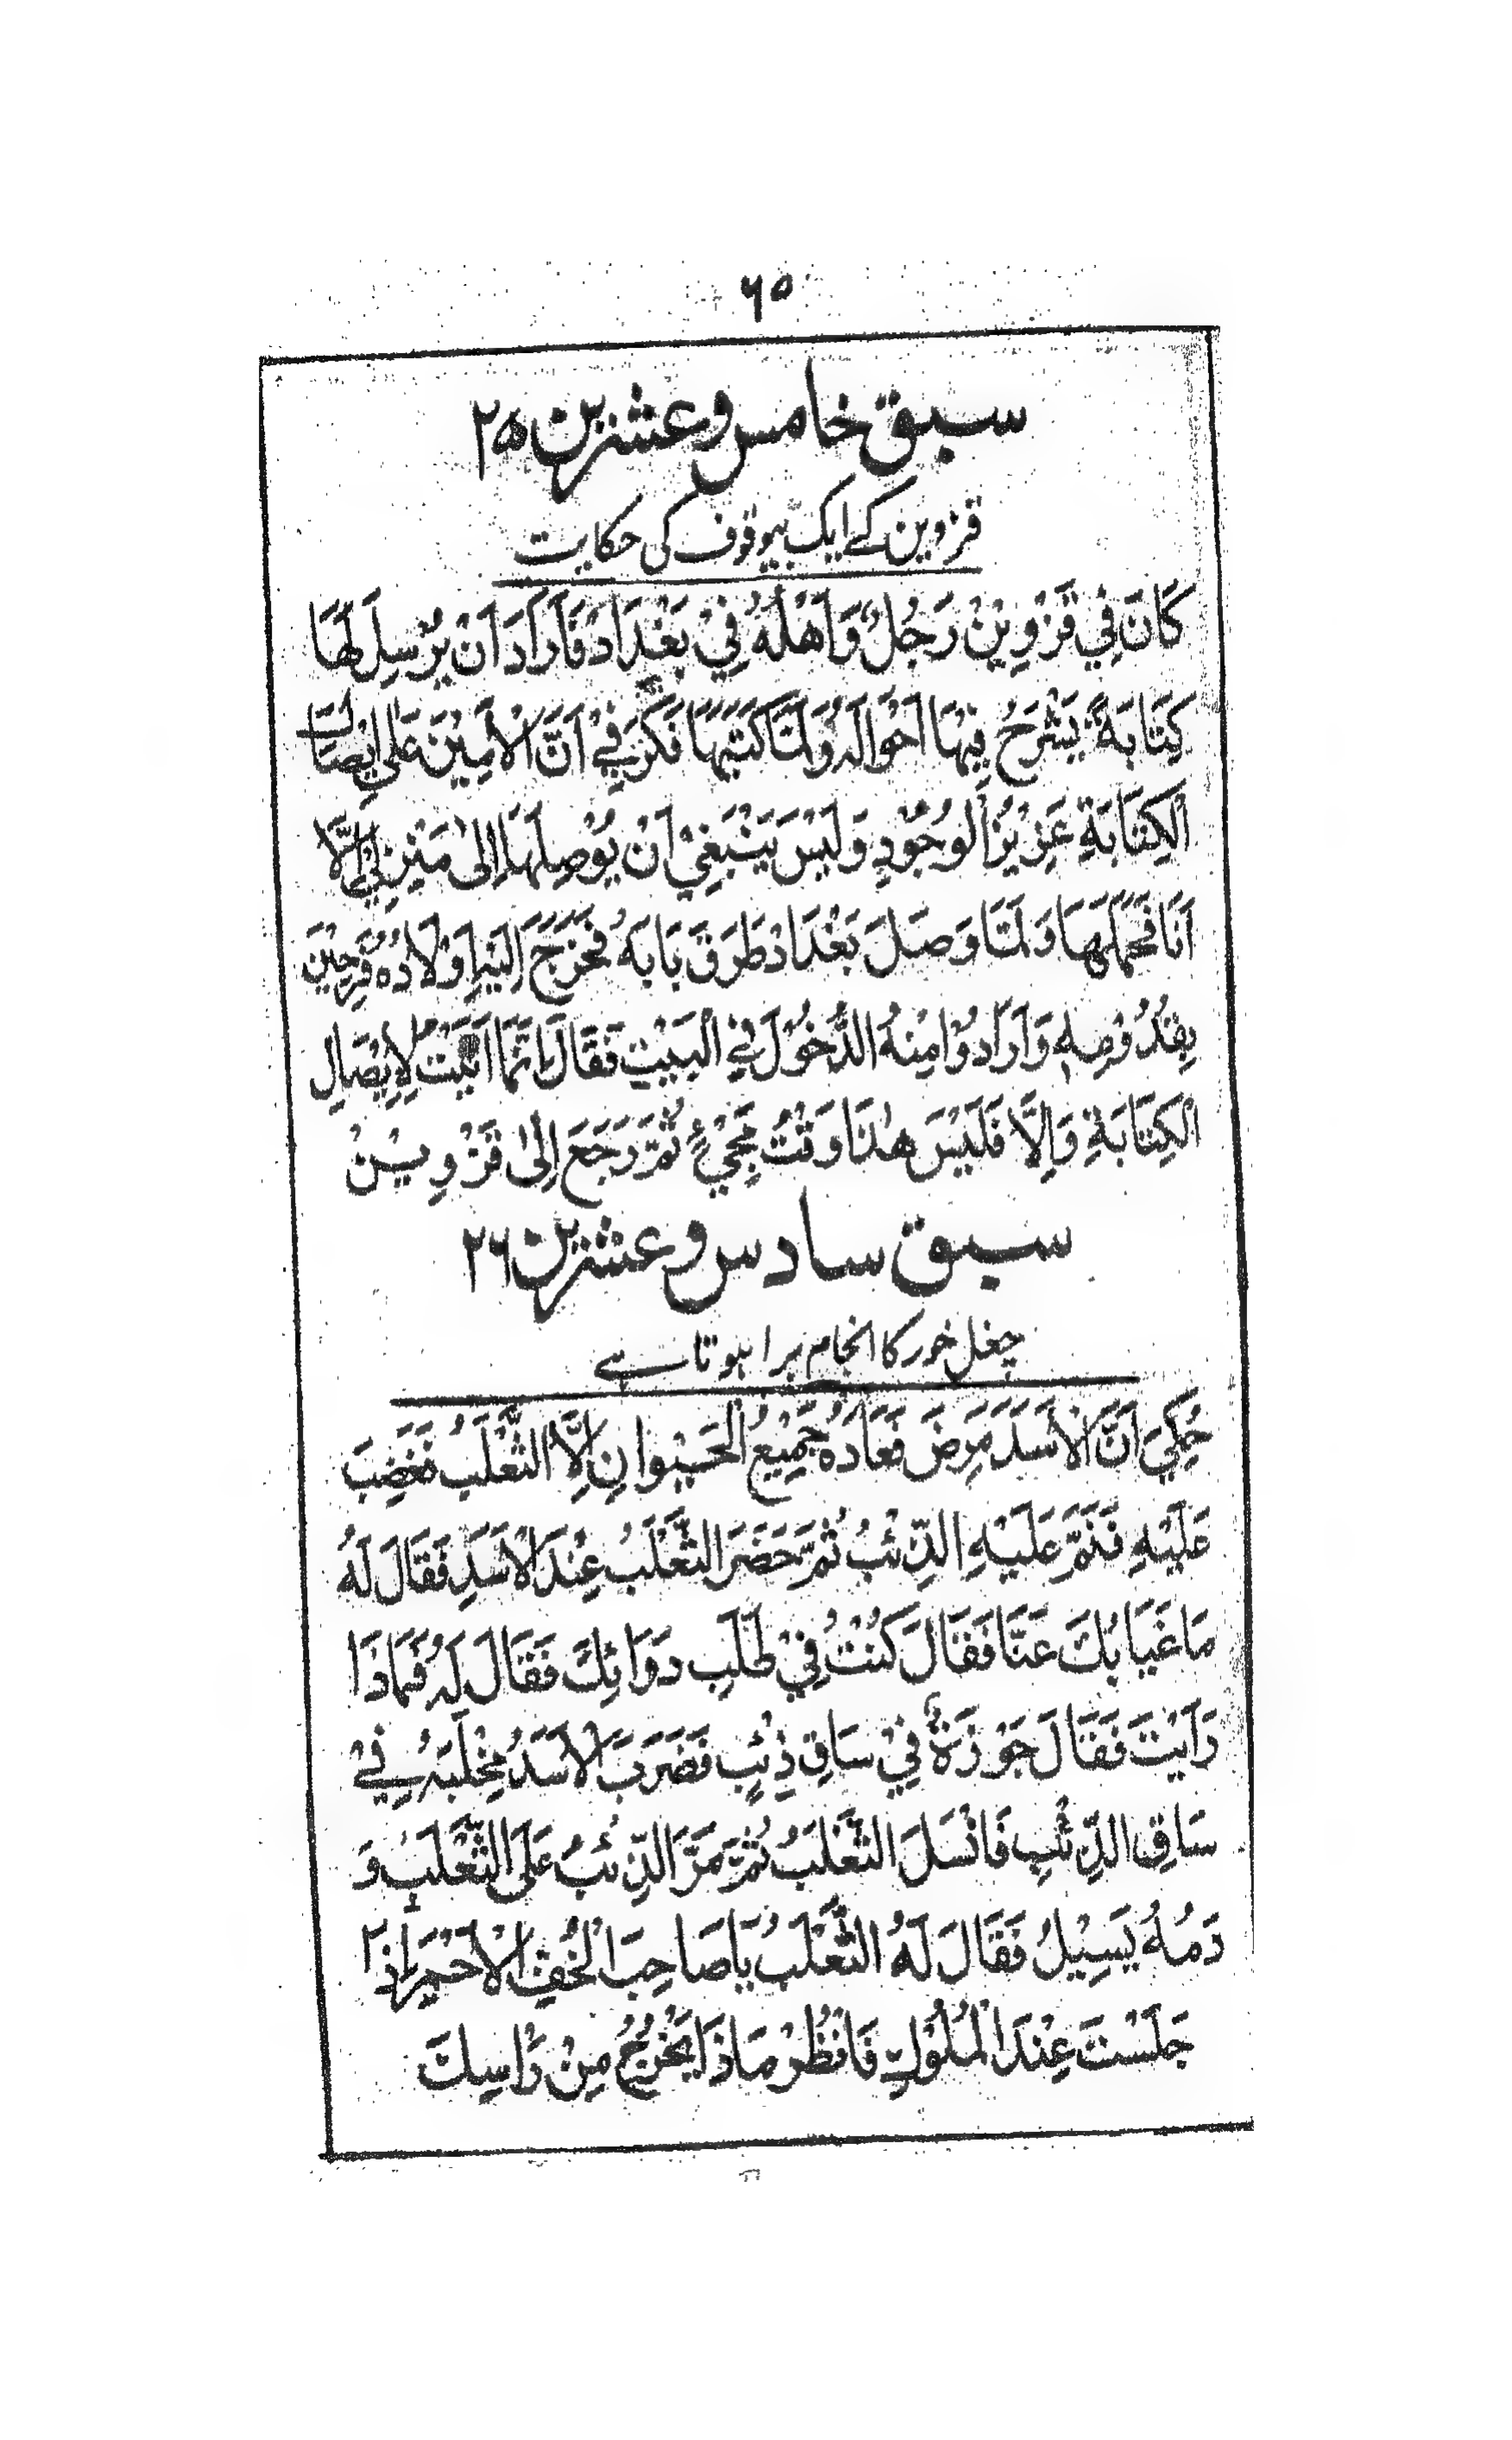 ۶۵
سبق خامس و عشرین ۲۵
قزوین کے ایک بیوقوف کی حکایت
كَانَ فِي قَزْوِيْنَ رَجُلٌ وَاَهْلُهُ فِيْ بَغْدَادَ فَاَرَادَ اَنْ يُرْسِلَ لَهَا
كِتَابَةً يَشْرَحُ فِيْهَا اَحْوَالَهُ وَلَمَّا كَتَبَهَا فَكَّرَ فِيْ اَنَّ الْاَمِيْنَ عَلٰى اِيْصَالِ
الْكِتَابَةِ عَزِيْزُ الْوُجُوْدِ وَلَيْسَ يَنْبَغِيْ اَنْ يُوْصِلَهَا اِلٰى مَنْزِلِيْ اِلَّا
اَنَا فَحَمَلَهَا وَلَمَّا وَصَلَ بَغْدَادَ طَرَقَ بَابَهُ فَخَرَجَ اِلَيْهِ اَوْلَادُهُ فَرِحِيْنَ
بِقُدُوْمِهِ وَاَرَادُوْا مِنْهُ الدُّخُوْلَ فِي الْبَيْتِ فَقَالَ اِنَّمَا اَتَيْتُ لِاِيْصَالِ
الْكِتَابَةِ وَاِلَّا فَلَيْسَ هٰذَا وَقْتُ مَجِيْءٍ ثُمَّ رَجَعَ اِلٰى قَزْوِيْنَ
سبق سادس و عشرین ۲۶
چغل خور کا انجام برا ہوتا ہے
حُكِيَ اَنَّ الْاَسَدَ مَرِضَ فَعَادَهُ جَمِيْعُ الْحَيْوَانِ اِلَّا الثَّعْلَبُ فَغَضِبَ
عَلَيْهِ فَنَمَّ عَلَيْهِ الذِّئْبُ ثُمَّ حَضَرَ الثَّعْلَبُ عِنْدَ الْاَسَدِ فَقَالَ لَهُ
مَا غَيَابُكَ عَنَّا فَقَالَ كُنْتُ فِيْ طَلَبِ دَوَائِكَ فَقَالَ لَهُ فَمَاذَا
رَاَيْتَ فَقَالَ جَوْزَةٌ فِيْ سَاقِ ذِئْبٍ فَضَرَبَ الْاَسَدُ مِخْلَبَهُ فِيْ
سَاقِ الذِّئْبِ فَانْسَلَ الثَّعْلَبُ ثُمَّ مَرَّ الذِّئْبُ عَلَى الثَّعْلَبِ وَ
دَمُهُ يَسِيْلُ فَقَالَ لَهُ الثَّعْلَبُ يَا صَاحِبَ الْخُفِّ الْاَحْمَرِ اِذَا
جَلَسْتَ عِنْدَ الْمُلُوْكِ فَانْظُرْ مَاذَا يَخْرُجُ مِنْ رَاْسِكَ